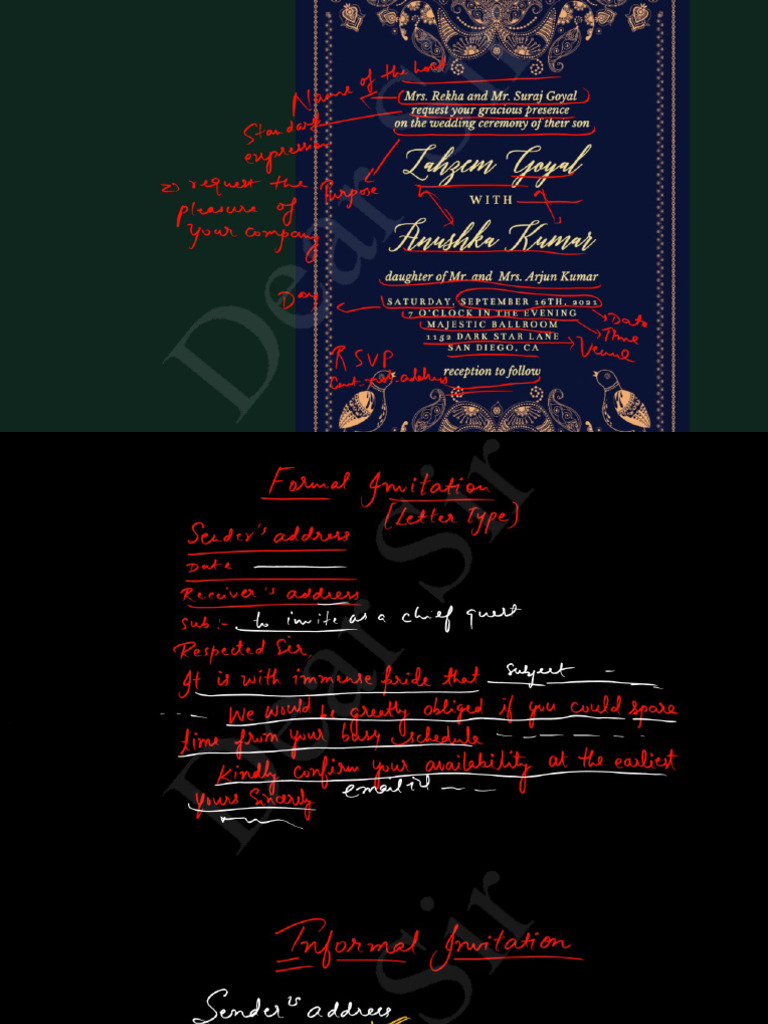 Name of the host
Mrs. Rekha and Mr. Suraj Goyal
request your gracious presence
on the wedding ceremony of their son
Standard
expression
2) request the
pleasure of
your company
Purpose
Lahzem Goyal
WITH
Anushka Kumar
daughter of Mr. and Mrs. Arjun Kumar
Day
SATURDAY, SEPTEMBER 16TH, 2021
Date
7 O'CLOCK IN THE EVENING
Time
MAJESTIC BALLROOM
1152 DARK STAR LANE
Venue
SAN DIEGO, CA
RSVP
address
reception to follow
Dear Sir
Formal Invitation
(Letter Type)
Sender's address
Date
Receiver's address
Sub:- to invite as a chief guest
Respected Sir,
It is with immense pride that subject
We would be greatly obliged if you could spare
time from your busy schedule
Kindly confirm your availability at the earliest
Yours Sincerely email id
Dear Sir
Informal Invitation
Sender's address
Sir